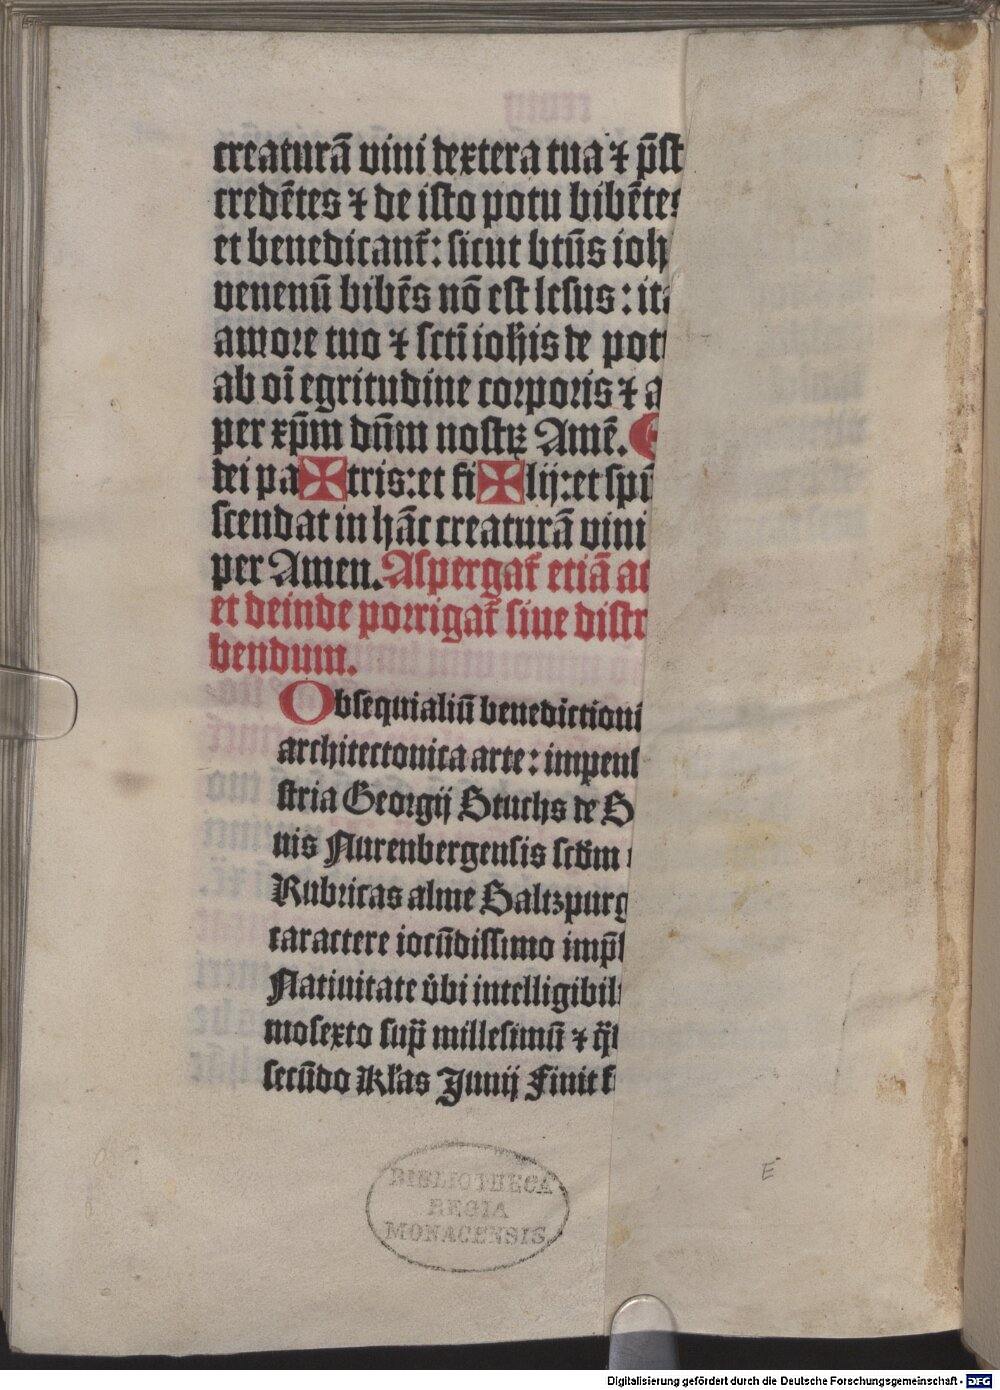 creaturã vini dextera tua ⁊ p̃st
credẽtes ⁊ de isto potu bibẽtes
et benedicant᷑: sicut btũs ioh
venenũ bibẽs nõ est lesus: ita
amore tuo ⁊ scti ioh̃is de pot
ab oĩ egritudine corporis ⁊ a
per xp̃m dñm nostꝝ Amẽ.
dei pa✠tris: et fi✠lij: et spũ
scendat in hãc creaturã vini
per Amen. Aspergat᷑ etiã ad
et deinde porrigat᷑ siue distr
bendum.
Obsequialiũ benedictioni
architectonica arte: impens
stria Georgij Stuchs de S
nis Nurenbergensis scd̃m
Rubricas alme Saltzpurg
caractere iocũdissimo imp̃
Natiuitate v̾bi intelligibil
mosexto sup̃ millesimũ ⁊ q̃
secũdo Kl̃as Junij Finit f
BIBLIOTHECA
REGIA
MONACENSIS
E
Digitalisierung gefördert durch die Deutsche Forschungsgemeinschaft - DFG